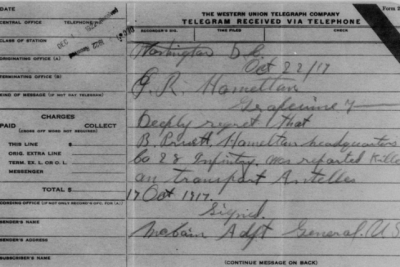 DATE
THE WESTERN UNION TELEGRAPH COMPANY
Form 2
CENTRAL OFFICE TELEPHONE NO.
TELEGRAM RECEIVED VIA TELEPHONE
RECORDER'S DIV. TIME FILED CHECK
CLASS OF STATION
DEC
Washington D.C.
Oct 22/17
ORIGINATING OFFICE (A)
G. R. Hamettan
TERMINATING OFFICE (B)
Grapevine
KIND OF MESSAGE (IF NOT DAY TELEGRAM)
Deeply regret that
CHARGES
PAID COLLECT
B. Pruitt Hamettan headquarters
THIS LINE $
Co 28 Infantry was reported Killed
ORIG. EXTRA LINE
TERM. EX. L. OR O. L.
on transport Antelles
MESSENGER
TOTAL $
17 Oct 1917.
Signed.
SENDER'S NAME
McCain Adjt General. U S
SENDER'S ADDRESS
SUBSCRIBER'S NAME
(CONTINUE MESSAGE ON BACK)